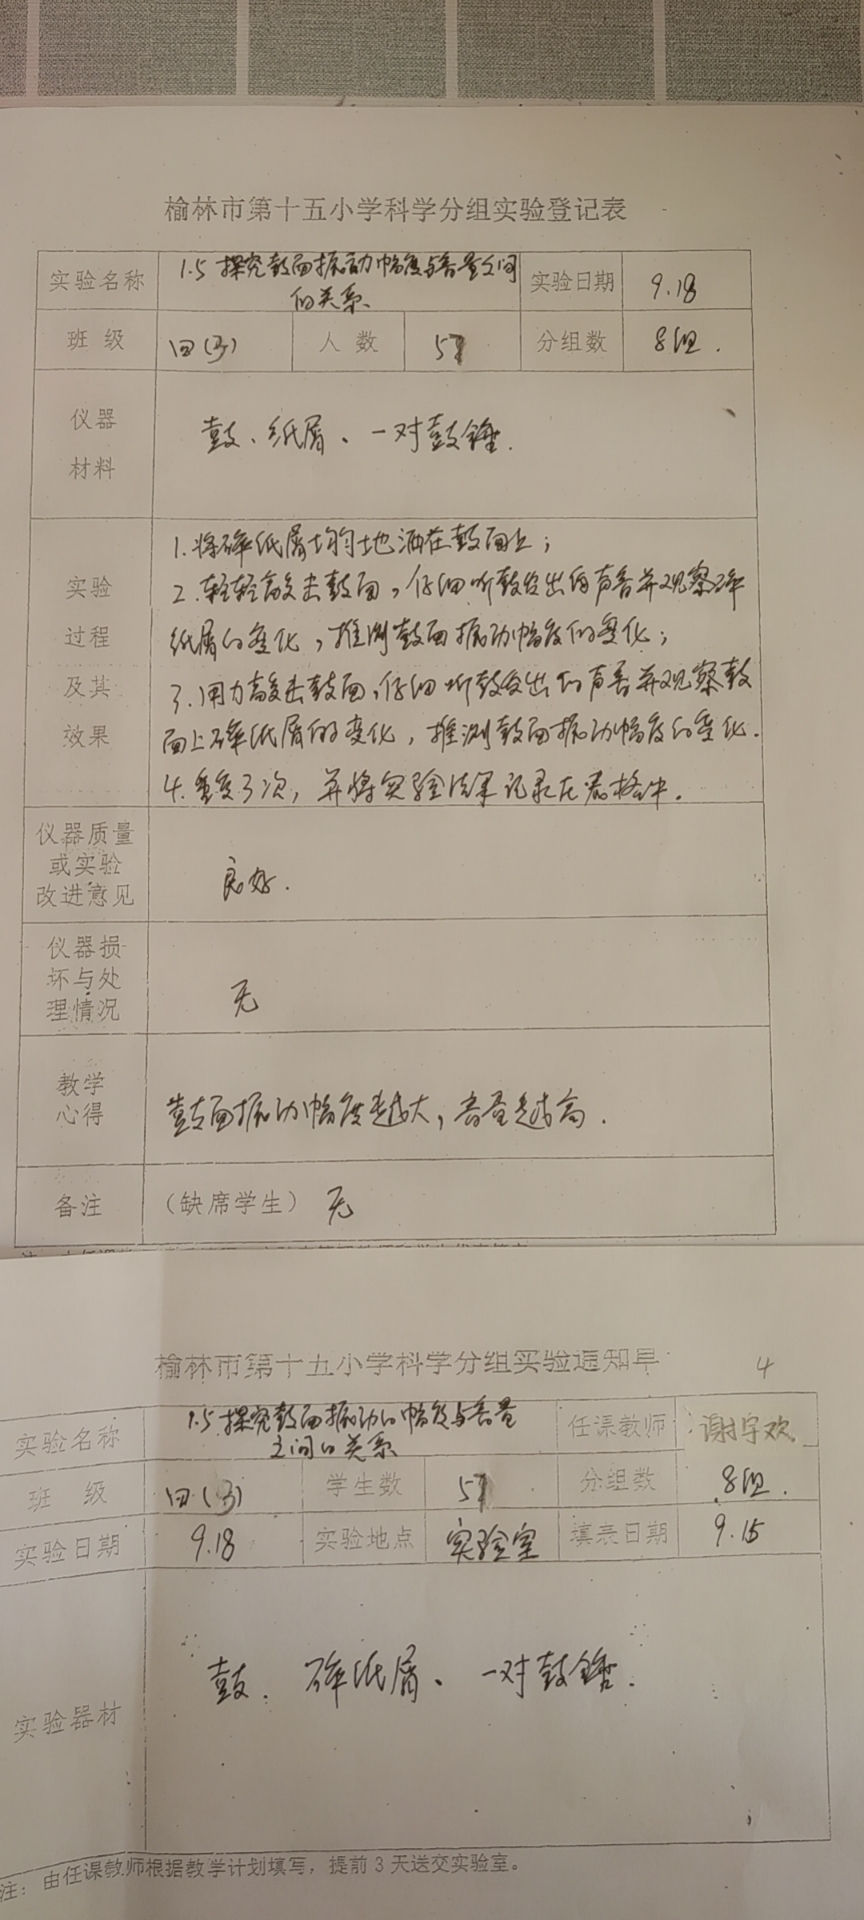 榆林市第十五小学科学分组实验登记表
实验名称 1.5 探究鼓面振动幅度与音量之间的关系 实验日期 9.18
班级 四(3) 人数 57 分组数 8组.
仪器材料 鼓、纸屑、一对鼓锤.
实验过程及其效果
1.将碎纸屑均匀地洒在鼓面上;
2.轻轻敲击鼓面,仔细听鼓发出的声音并观察碎
纸屑的变化,推测鼓面振动幅度的变化;
3.用力敲击鼓面,仔细听鼓发出的声音并观察鼓
面上碎纸屑的变化,推测鼓面振动幅度的变化.
4.重复3次,并将实验结果记录在表格中.
仪器质量或实验改进意见 良好.
仪器损坏与处理情况 无
教学心得 鼓面振动幅度越大,音量越高.
备注 (缺席学生) 无
榆林市第十五小学科学分组实验通知单 4
实验名称 1.5 探究鼓面振动的幅度与音量之间的关系 任课教师 谢宇欢
班级 四(3) 学生数 57 分组数 8组.
实验日期 9.18 实验地点 实验室 填表日期 9.15
实验器材 鼓、碎纸屑、一对鼓锤.
注:由任课教师根据教学计划填写,提前3天送交实验室。